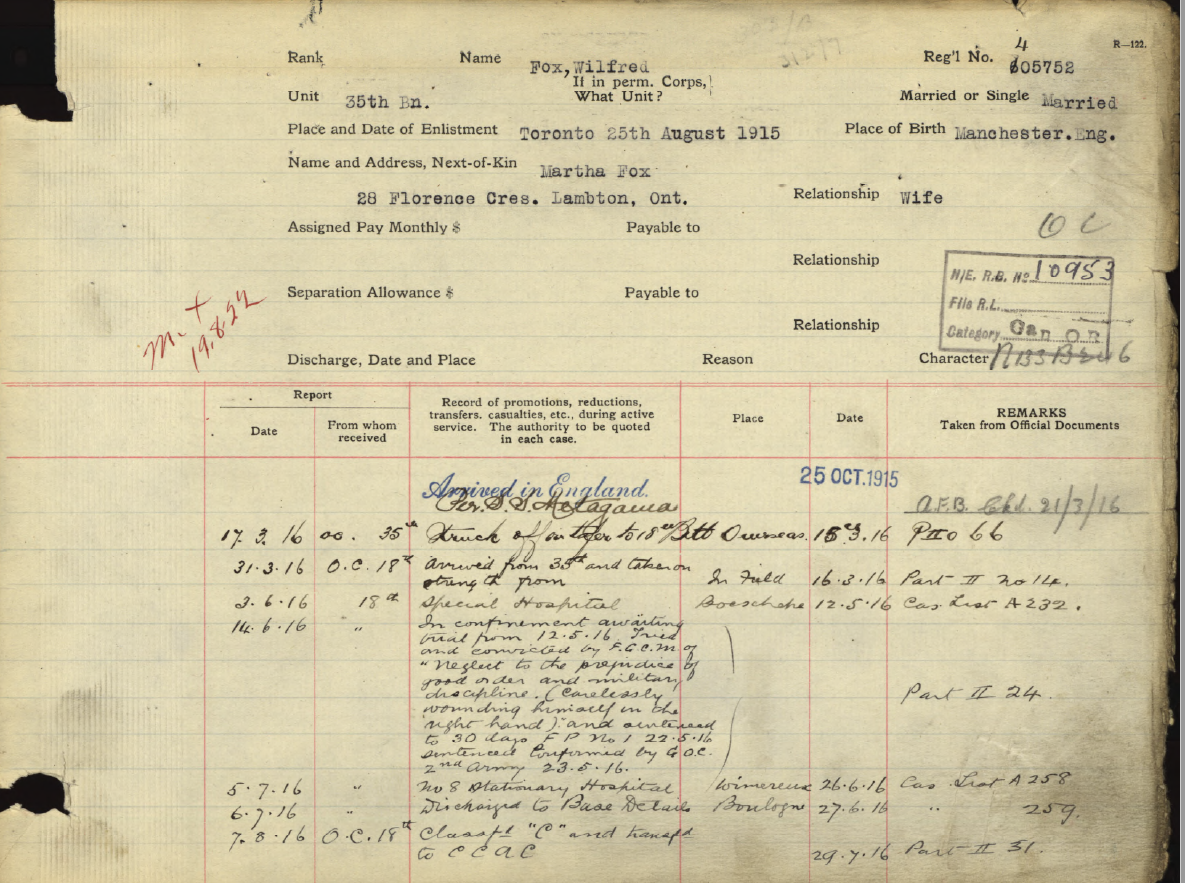 R—122.
Rank Name Fox, Wilfred Reg'l No. 4
605752
If in perm. Corps,
Unit 35th Bn. What Unit? Married or Single Married
Place and Date of Enlistment Toronto 25th August 1915 Place of Birth Manchester.Eng.
Name and Address, Next-of-Kin Martha Fox
28 Florence Cres. Lambton, Ont. Relationship Wife
Assigned Pay Monthly $ Payable to
O C
Relationship
N/E. R.B. No 10953
Separation Allowance $ Payable to
File R.L.
Relationship
Category Can O R
19.8.22
Discharge, Date and Place Reason Character
Report
Date
From whom
received
Record of promotions, reductions,
transfers. casualties, etc., during active
service. The authority to be quoted
in each case.
Place
Date
REMARKS
Taken from Official Documents
Arrived in England. 25 OCT.1915
Per S.S. Metagama A.F.B. Ckd. 21/3/16
17.3.16 oo. 35th Struck off on tfer to 18th Batt Overseas 15.3.16 P II o 66
31.3.16 O.C. 18th Arrived from 35th and taken on
strength from In Field 16.3.16 Part II No 14.
3.6.16 18th Special Hospital Boeschepe 12.5.16 Cas List A 232.
14.6.16 " In confinement awaiting
trial from 12.5.16 Tried
and convicted by F.G.C.M of
"Neglect to the prejudice of
good order and military
discipline. (Carelessly
wounding himself in the
right hand) and sentenced
to 30 days F P No 1 22.5.16
sentenced Confirmed by G.O.C.
2nd Army 23.5.16.
Part II 24.
5.7.16 " No 8 Stationary Hospital Wimereux 26.6.16 Cas List A 258
6.7.16 " Discharged to Base Details Boulogne 27.6.16 " 259.
7.8.16 O.C. 18th Classfd "C" and transfd
to C C A C 29.7.16 Part II 31.